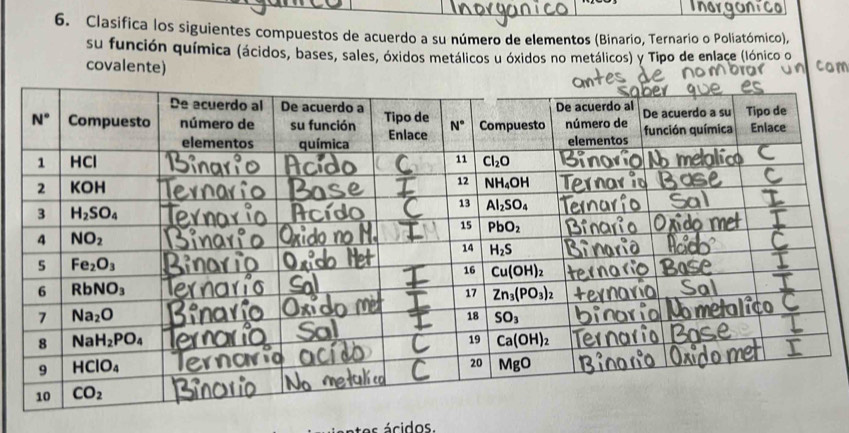 Inorgánico
Inorgánico
6. Clasifica los siguientes compuestos de acuerdo a su número de elementos (Binario, Ternario o Poliatómico),
su función química (ácidos, bases, sales, óxidos metálicos u óxidos no metálicos) y Tipo de enlace (Iónico o
covalente)
antes de nombrar un com
saber que es
N° Compuesto De acuerdo al número de elementos De acuerdo a su función química Tipo de Enlace N° Compuesto De acuerdo al número de elementos De acuerdo a su función química Tipo de Enlace
1 HCl Binario Acido C 11 Cl₂O Binario No metalico C
2 KOH Ternario Base I 12 NH₄OH Ternario Base C
3 H₂SO₄ Ternario Acído C 13 Al₂SO₄ Ternario Sal I
4 NO₂ Binario Oxido no M. I 15 PbO₂ Binario Oxido met I
5 Fe₂O₃ Binario Oxido Met 14 H₂S Binario Acido C
6 RbNO₃ Ternario Sal I 16 Cu(OH)₂ ternario Base I
7 Na₂O Binario Oxido met I 17 Zn₃(PO₃)₂ ternario Sal I
8 NaH₂PO₄ Ternario Sal I 18 SO₃ binario No metalico C
9 HClO₄ Ternario acído C 19 Ca(OH)₂ Ternario Base I
10 CO₂ Binario No metalico C 20 MgO Binario Oxido met I
ácidos.